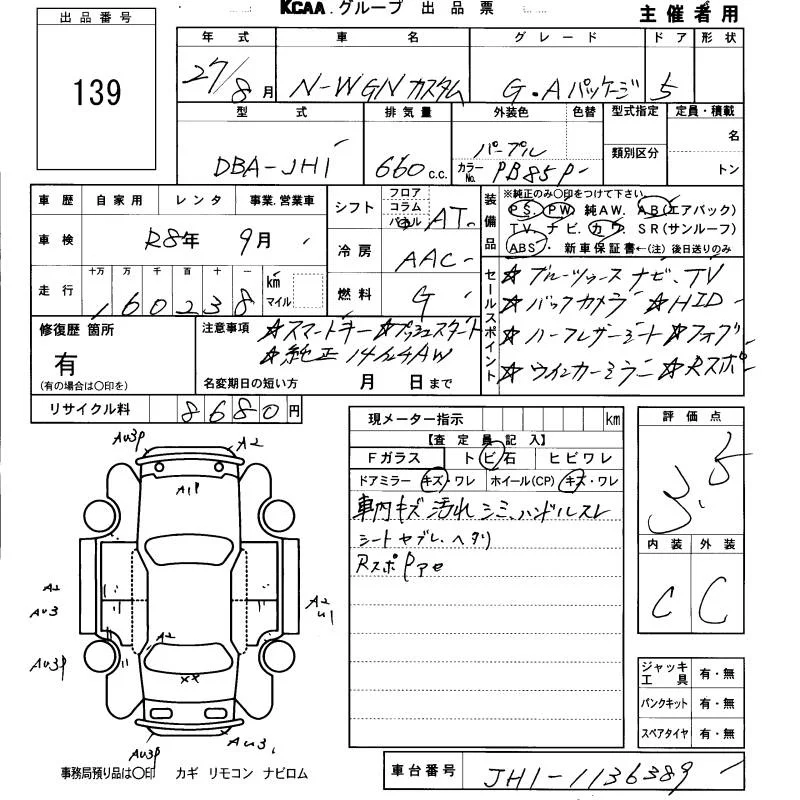 KCAA.グループ 出品票
主催者用
出品番号
139
年式 車名 グレード ドア 形状
27/8月 N-WGN カスタム G・Aパッケージ 5
型式 排気量 外装色 色替 型式指定 定員・積載
DBA-JH1 660 c.c. パープル 名
カラーNo. PB85P 類別区分 トン
車歴 自家用 レンタ 事業.営業車
シフト フロア コラム パネル AT
装備品 ※純正のみ○印をつけて下さい
PS. PW. 純AW. AB(エアバック)
TV. ナビ. カワ. SR(サンルーフ)
ABS・新車保証書←(注)後日送りのみ
車検 R8年 9月
冷房 AAC
走行 十万 万 千 百 十 一
160238 km マイル
燃料 G
セールスポイント
☆ブルーツゥース ナビ、TV
☆バックカメラ ☆HID
☆ハーフレザーシート ☆フォグ
☆ウインカーミラー ☆Rスポ
修復歴 箇所
有
(有の場合は○印を)
注意事項 ☆スマートキー ☆プッシュスタート
☆純正14インチAW
名変期日の短い方 月 日まで
リサイクル料 8680円
現メーター指示 km
【査定員記入】
Fガラス トビ石 ヒビワレ
ドアミラー キズ・ワレ ホイール(CP) キズ・ワレ
車内キズ 汚れ シミ、ハンドルスレ
シートヤブレ、ヘタリ
Rスポ Pアセ
評価点
3.5
内装 外装
C C
AU3P A2
A1P
A2
AU3
A2
U1
AU3P
A2
XX
AU3P
AU3
ジャッキ工具 有・無
パンクキット 有・無
スペアタイヤ 有・無
事務局預り品は○印 カギ リモコン ナビロム
車台番号 JH1-1136389